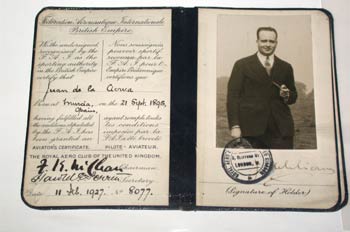 Fédération Aéronautique Internationale
British Empire
We the undersigned
recognised by the
F.A.I. as the
sporting authority
in the British Empire
certify that
Nous soussignés
pouvoir sportif
reconnu par la
F.A.I. pour l'
Empire Britannique
certifions que
Juan de la Cierva
Born at Murcia, Spain, on the 21 Sept. 1895
having fulfilled all
the conditions stipulated
by the F.A.I. has
been granted an
AVIATOR'S CERTIFICATE.
les conditions
imposées par la
PILOTE - AVIATEUR.
THE ROYAL AERO CLUB OF THE UNITED KINGDOM.
Chairman
Harold E Perrin Secretary
Date 11 Feb. 1927. No 8077.
LONDON, W.
(Signature of Holder)